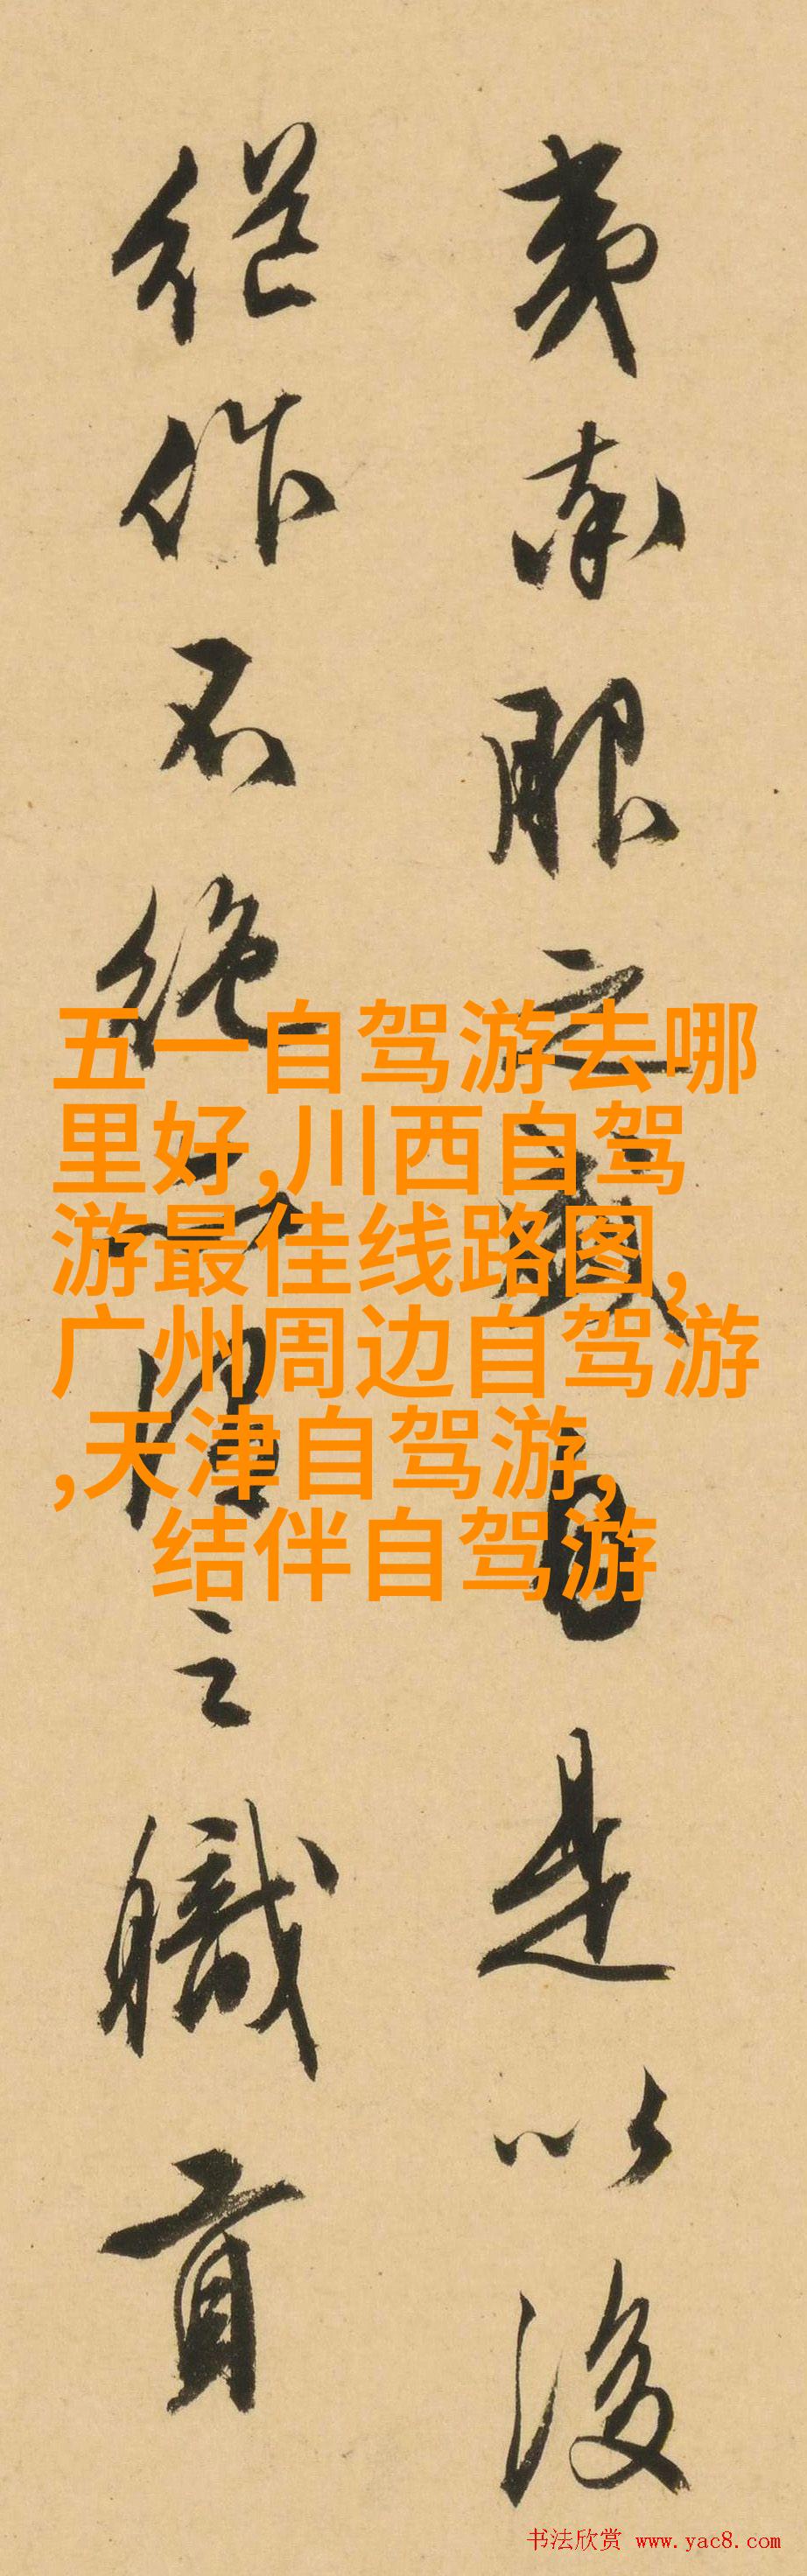 夷服之盛自是以後
繼作不絕之職貢
五一自驾游去哪
里好,川西自驾
游最佳线路图,
广州周边自驾游
,天津自驾游,
结伴自驾游
书法欣赏 www.yac8.com